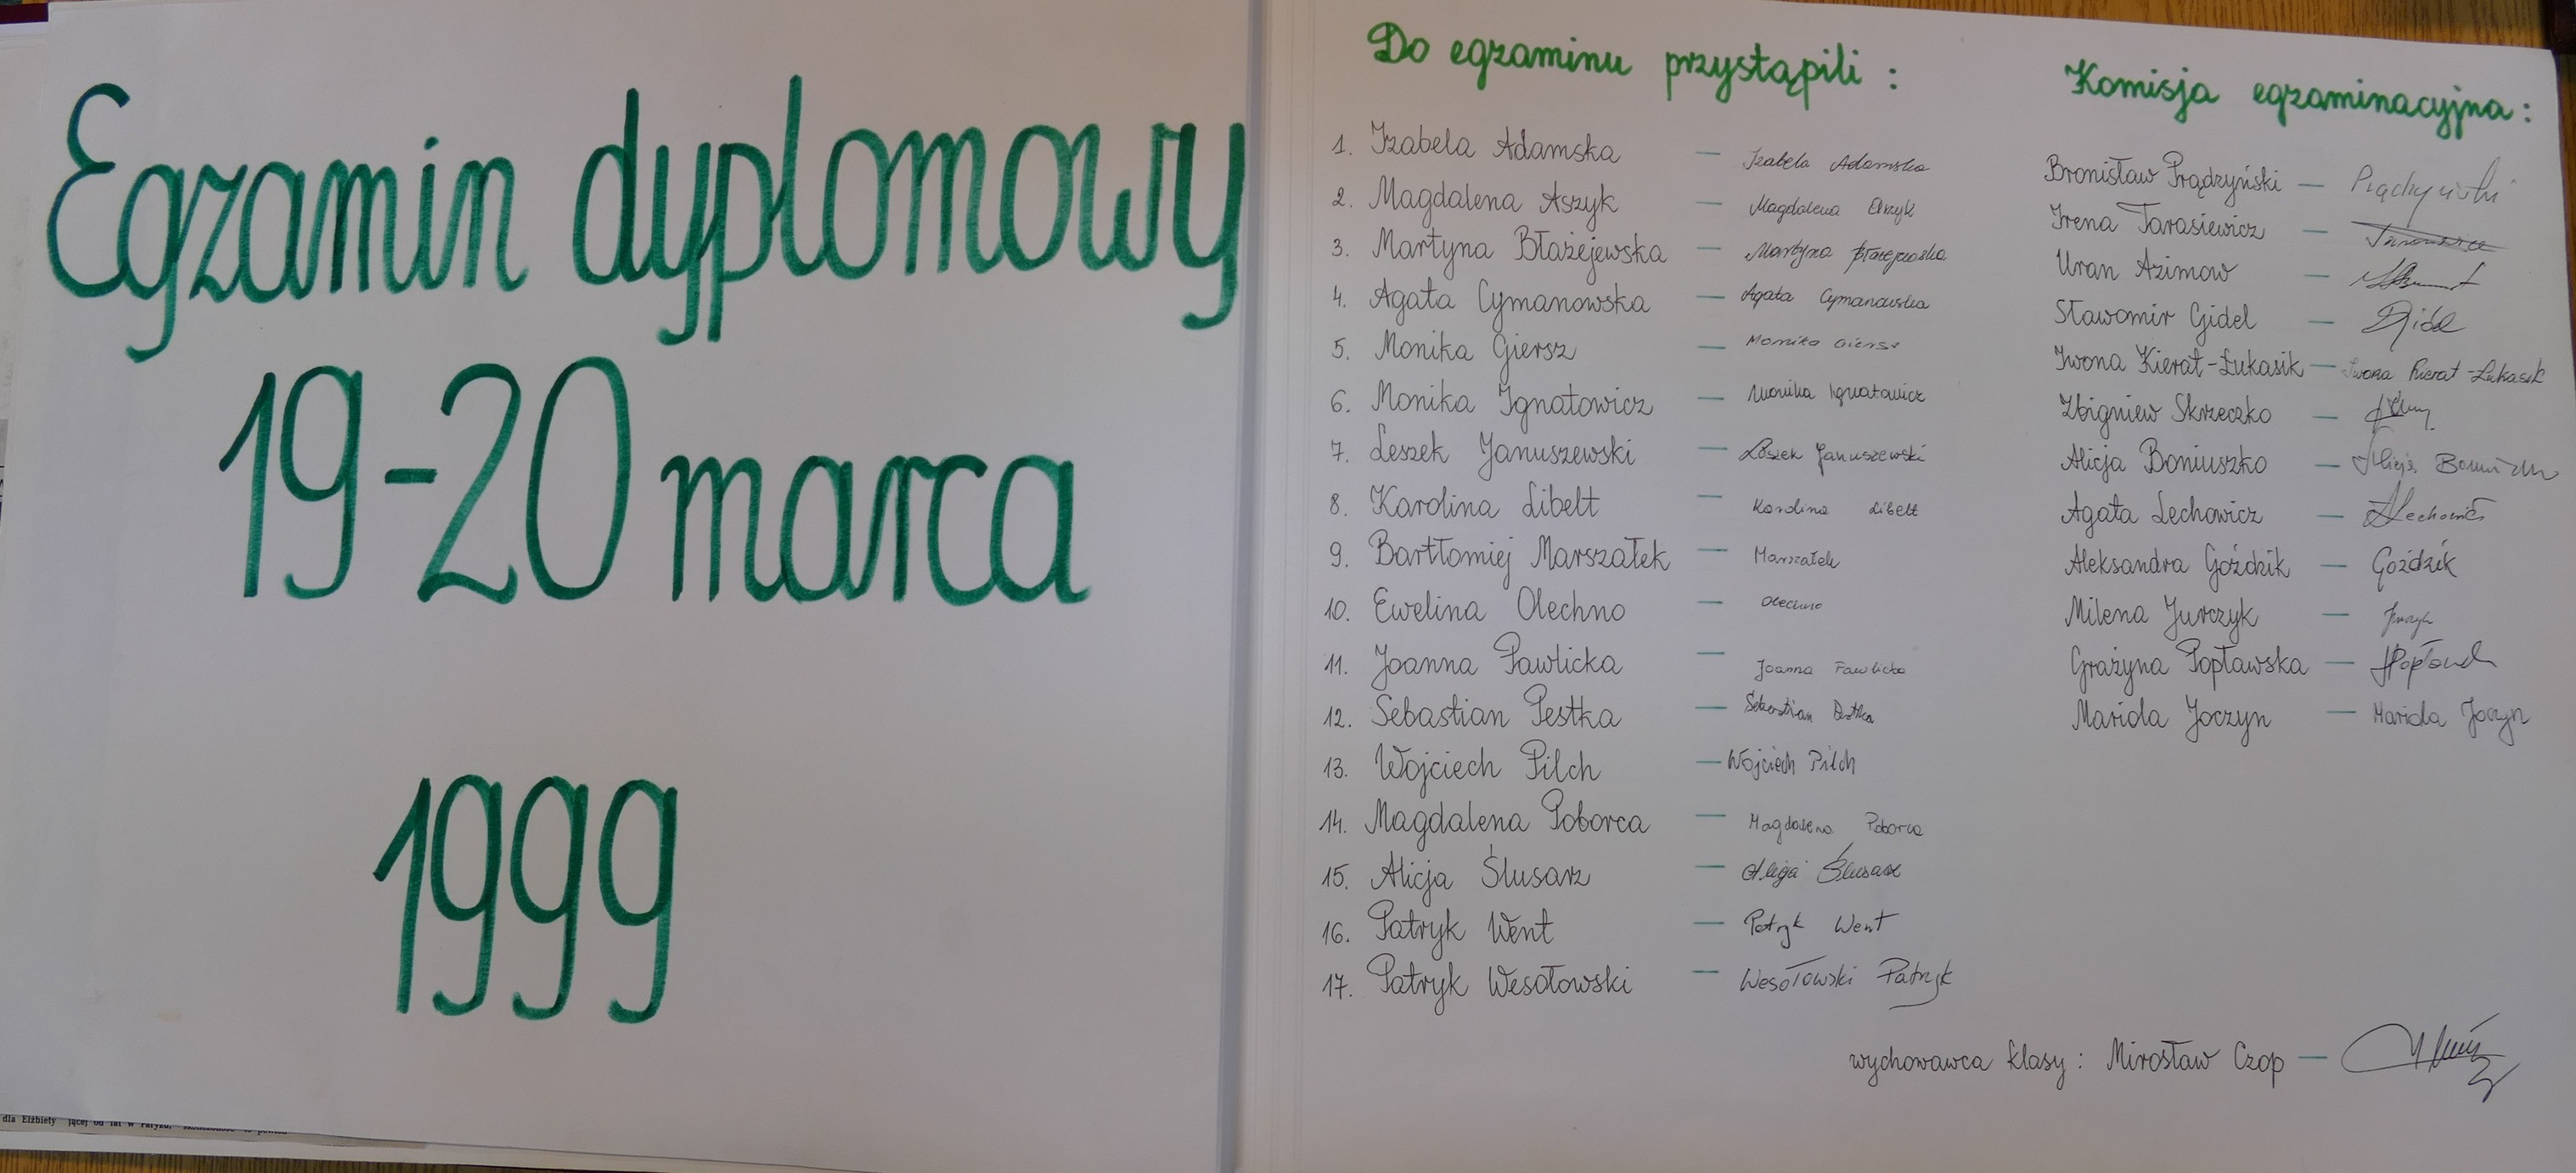 Egzamin dyplomowy
19-20 marca
1999
dla Elżbiety
Do egzaminu przystąpili :
1. Izabela Adamska — Izabela Adamska
2. Magdalena Aszyk — Magdalena Aszyk
3. Martyna Błażejewska — Martyna Błażejewska
4. Agata Cymanowska — Agata Cymanowska
5. Monika Giersz — Monika Giersz
6. Monika Ignatowicz — Monika Ignatowicz
7. Leszek Januszewski — Leszek Januszewski
8. Karolina Libelt — Karolina Libelt
9. Bartłomiej Marszałek — Marszałek
10. Ewelina Olechno — Olechno
11. Joanna Pawlicka — Joanna Pawlicka
12. Sebastian Pestka — Sebastian Pestka
13. Wojciech Pilch — Wojciech Pilch
14. Magdalena Poborca — Magdalena Poborca
15. Alicja Ślusarz — Alicja Ślusarz
16. Patryk Went — Patryk Went
17. Patryk Wesołowski — Wesołowski Patryk
Komisja egzaminacyjna :
Bronisław Prądzyński — Prądzyński
Irena Tarasiewicz —
Uran Azimow —
Sławomir Gidel — Gidel
Iwona Kierat-Łukasik — Iwona Kierat-Łukasik
Zbigniew Skrzeczko —
Alicja Boniuszko — Alicja Boniuszko
Agata Lechowicz — ALechowicz
Aleksandra Goździk — Goździk
Milena Jurczyk — Jurczyk
Grażyna Popławska —
Mariola Joczyn — Mariola Joczyn
wychowawca klasy : Mirosław Czop —